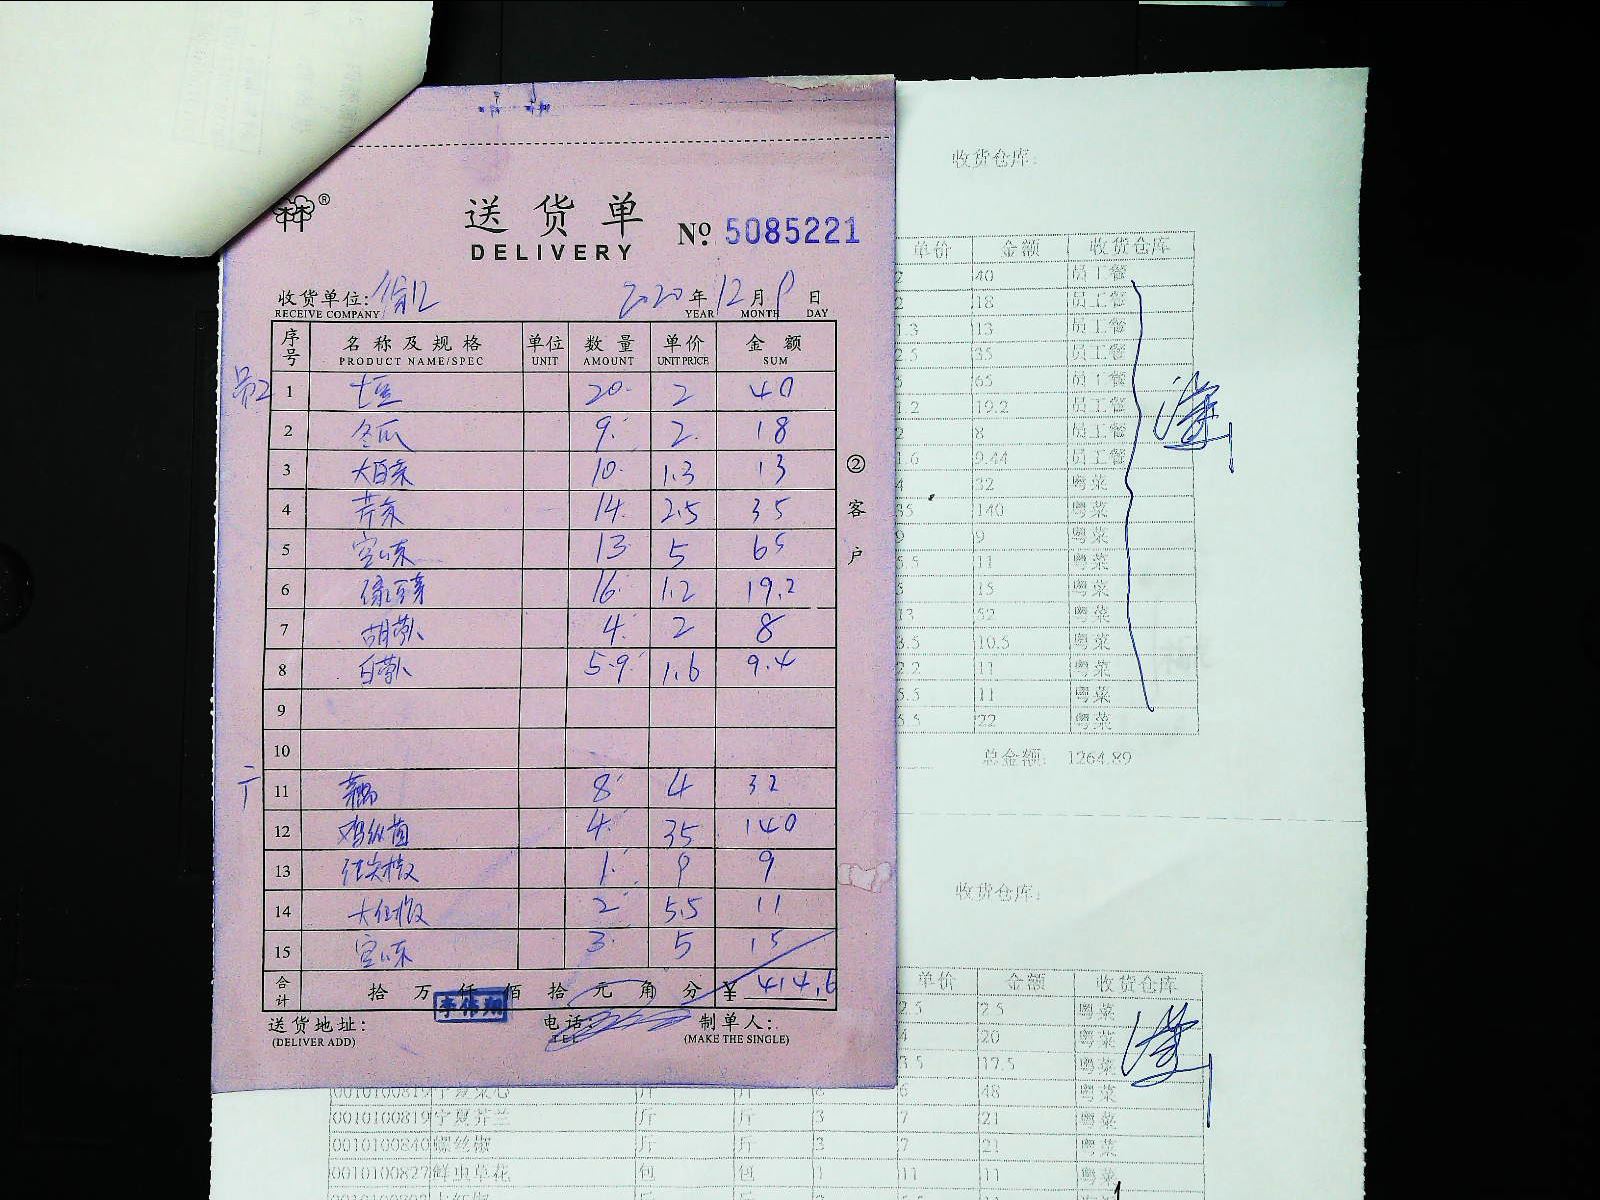 收货仓库:
送货单
DELIVERY
№ 5085221
收货单位:
RECEIVE COMPANY
2020年12月9日
YEAR MONTH DAY
序号 名称及规格 单位 数量 单价 金额
PRODUCT NAME/SPEC UNIT AMOUNT UNIT PRICE SUM
员工
1 土豆 20 2 40
2 冬瓜 9 2 18
3 大白菜 10 1.3 13
4 芹菜 14 2.5 35
5 空心菜 13 5 65
6 绿豆芽 16 1.2 19.2
7 胡萝卜 4 2 8
8 白萝卜 5.9 1.6 9.4
9
10
11 8 4 32
12 鸡纵菌 4 35 140
13 1 9 9
14 大红椒 2 5.5 11
15 空心菜 3 5 15
合计 拾 万 仟 佰 拾 元 角 分 ¥ 414.6
李伟翔
送货地址: 电话: 制单人:
(DELIVER ADD) TEL (MAKE THE SINGLE)
②客户
单价 金额 收货仓库
2 40 员工餐
2 18 员工餐
1.3 13 员工餐
2.5 35 员工餐
5 65 员工餐
1.2 19.2 员工餐
2 8 员工餐
1.6 9.44 员工餐
4 32 粤菜
35 140 粤菜
9 9 粤菜
5.5 11 粤菜
5 15 粤菜
13 52 粤菜
3.5 10.5 粤菜
2.2 11 粤菜
5.5 11 粤菜
5.5 22 粤菜
总金额: 1264.89
收货仓库:
单价 金额 收货仓库
2.5 2.5 粤菜
4 20 粤菜
3.5 17.5 粤菜
0010100819 宁夏菜心 斤 斤 8 6 48 粤菜
0010100819 宁夏芥兰 斤 斤 3 7 21 粤菜
0010100840 螺丝椒 斤 斤 3 7 21 粤菜
0010100827 鲜虫草花 包 包 1 11 11 粤菜